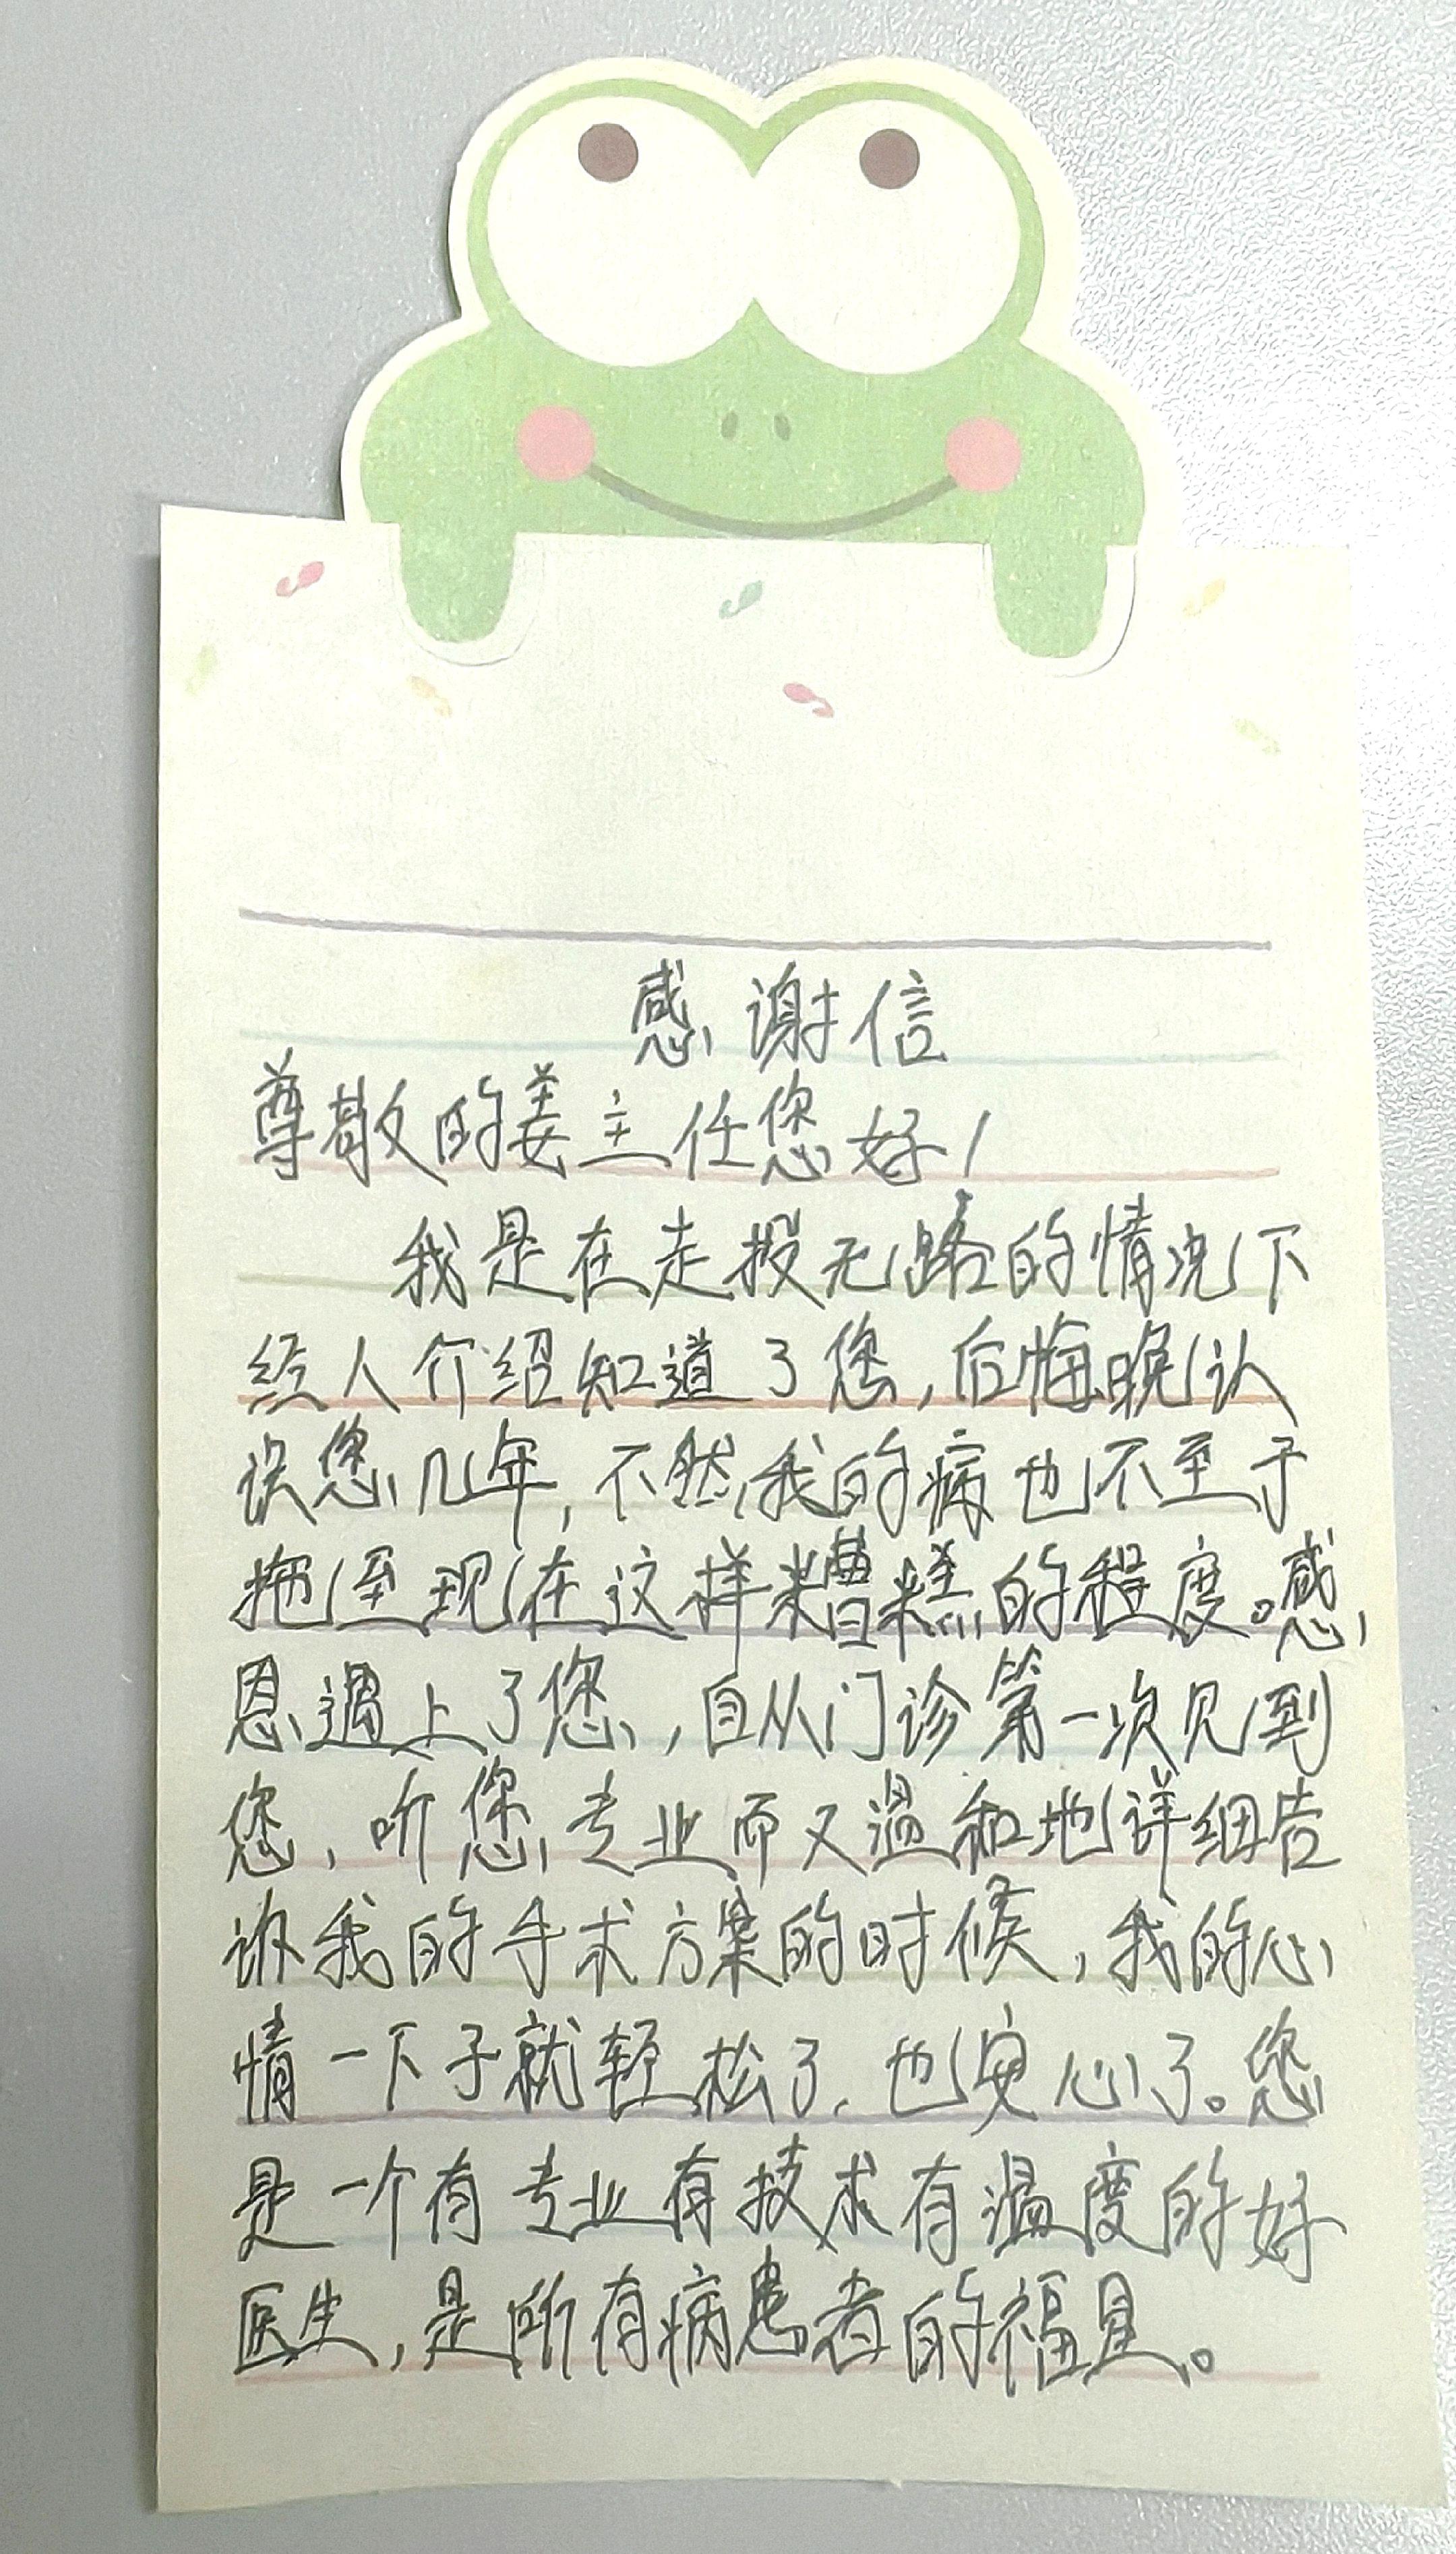 感谢信
尊敬的姜主任您好！
我是在走投无路的情况下
经人介绍知道了您，后悔晚认
识您几年，不然我的病也不至于
拖至现在这样糟糕的程度。感
恩遇上了您，自从门诊第一次见到
您，听您专业而又温和地详细告
诉我的手术方案的时候，我的心
情一下子就轻松了，也安心了。您
是一个有专业有技术有温度的好
医生，是所有病患者的福星。